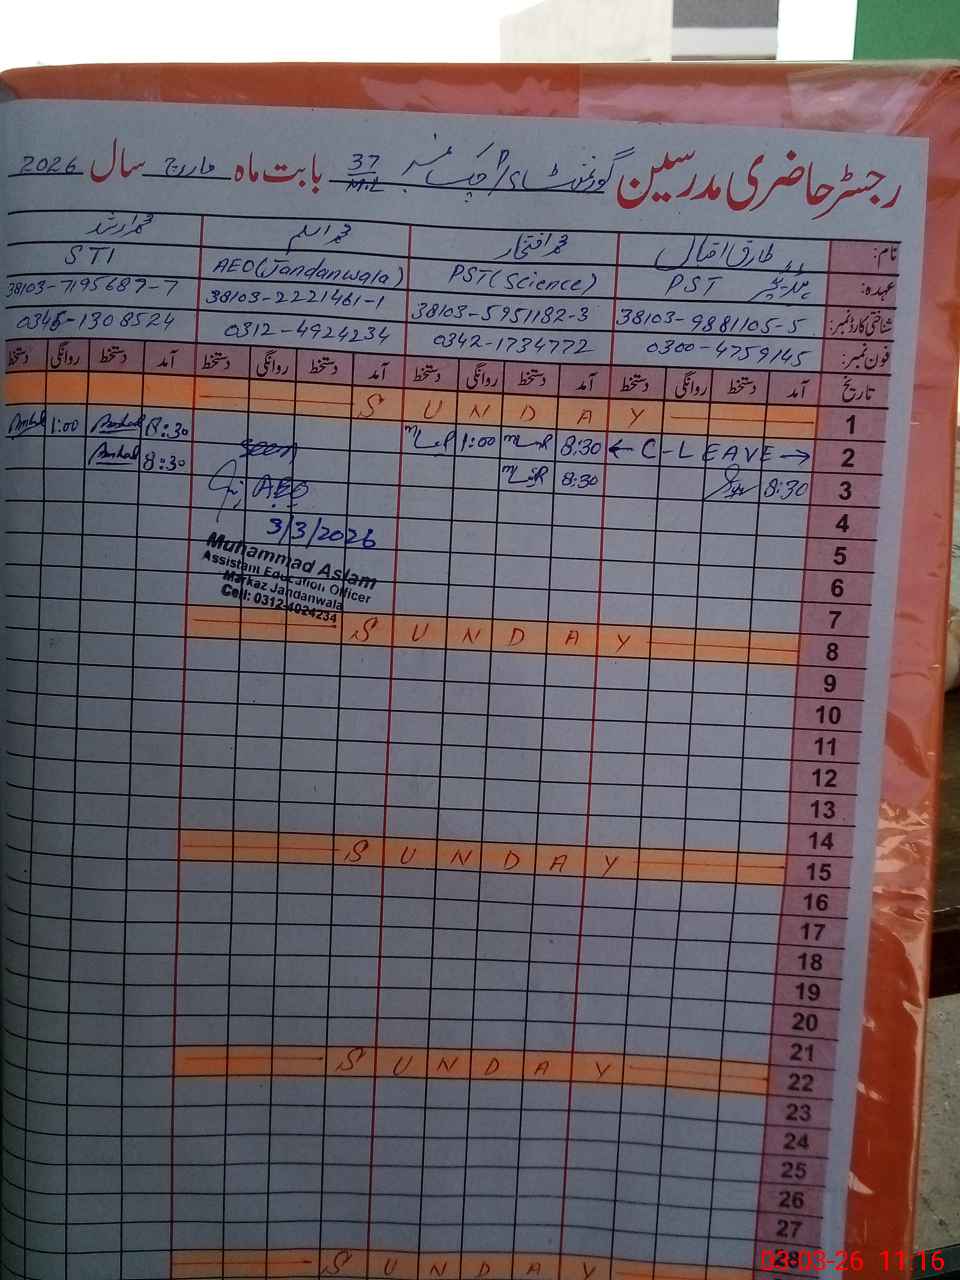 رجسٹر حاضری مدرسین گورنمنٹ ہائی / چک نمبر 37 M.L بابت ماہ مارچ سال 2026
نام: طارق اقبال محمد افتخار محمد اسلم محمد ارشد
عہدہ: PST PST (Science) AEO (Jandanwala) STI
شناختی کارڈ نمبر: 38103-9881105-5 38103-5951182-3 38103-2221461-1 38103-7195687-7
فون نمبر: 0300-4759145 0342-1734772 0312-4924234 0345-1308524
تاریخ آمد دستخط روانگی دستخط آمد دستخط روانگی دستخط آمد دستخط روانگی دستخط آمد دستخط روانگی دستخط
1 SUNDAY
2 ← C-LEAVE → 8:30 1:00 Seen 8:30 Arshad 1:00 Arshad
3 8:30 8:30 AEO 8:30 Arshad
4 3/3/2026
Muhammad Aslam
Assistant Education Officer
Markaz Jandanwala
Cell: 0312-4924234
5
6
7
8 SUNDAY
9
10
11
12
13
14
15 SUNDAY
16
17
18
19
20
21
22 SUNDAY
23
24
25
26
27
28 SUNDAY
03-03-26 11:16